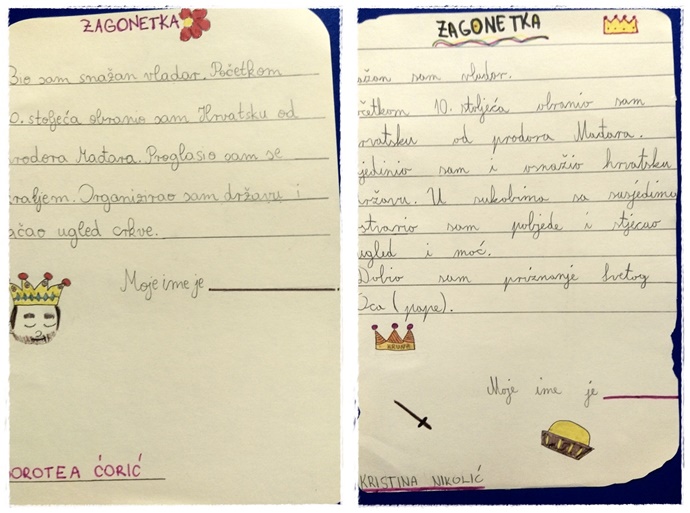 ZAGONETKA
Bio sam snažan vladar. Početkom
0. stoljeća obranio sam Hrvatsku od
rodora Mađara. Proglasio sam se
raljem. Organizirao sam državu i
ačao ugled crkve.
Moje ime je
OROTEA ĆORIĆ
ZAGONETKA
ažan sam vladar.
četkom 10. stoljeća obranio sam
rvatsku od prodora Mađara.
jedinio sam i osnažio hrvatsku
ržavu. U sukobima sa susjedima
stvario sam pobjede i stjecao
ugled i moć.
Dobio sam priznanje Svetog
Oca (pape).
KRUNA
Moje ime je
KRISTINA NIKOLIĆ